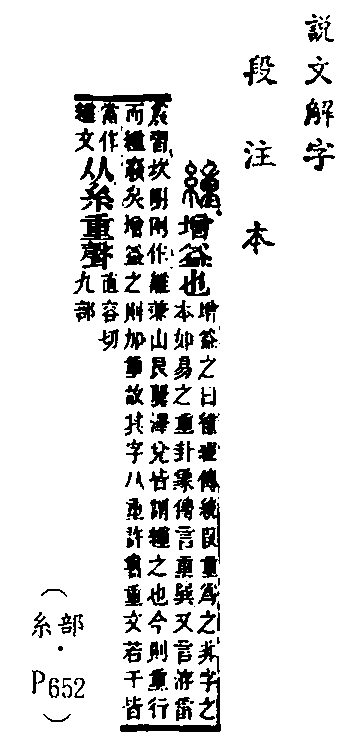 説文解字
段注本
緟增益也
增益之曰緟經傳統叚重爲之非字之
本如易之重卦象傳言重巽又言洊雷
震習坎明兩作離兼山艮麗澤兌皆謂緟之也今則重行
而緟廢矣增益之則加重故其字从重許書重文若干皆
當作
緟文
从糸重聲
直容切
九部
(糸部·P652)